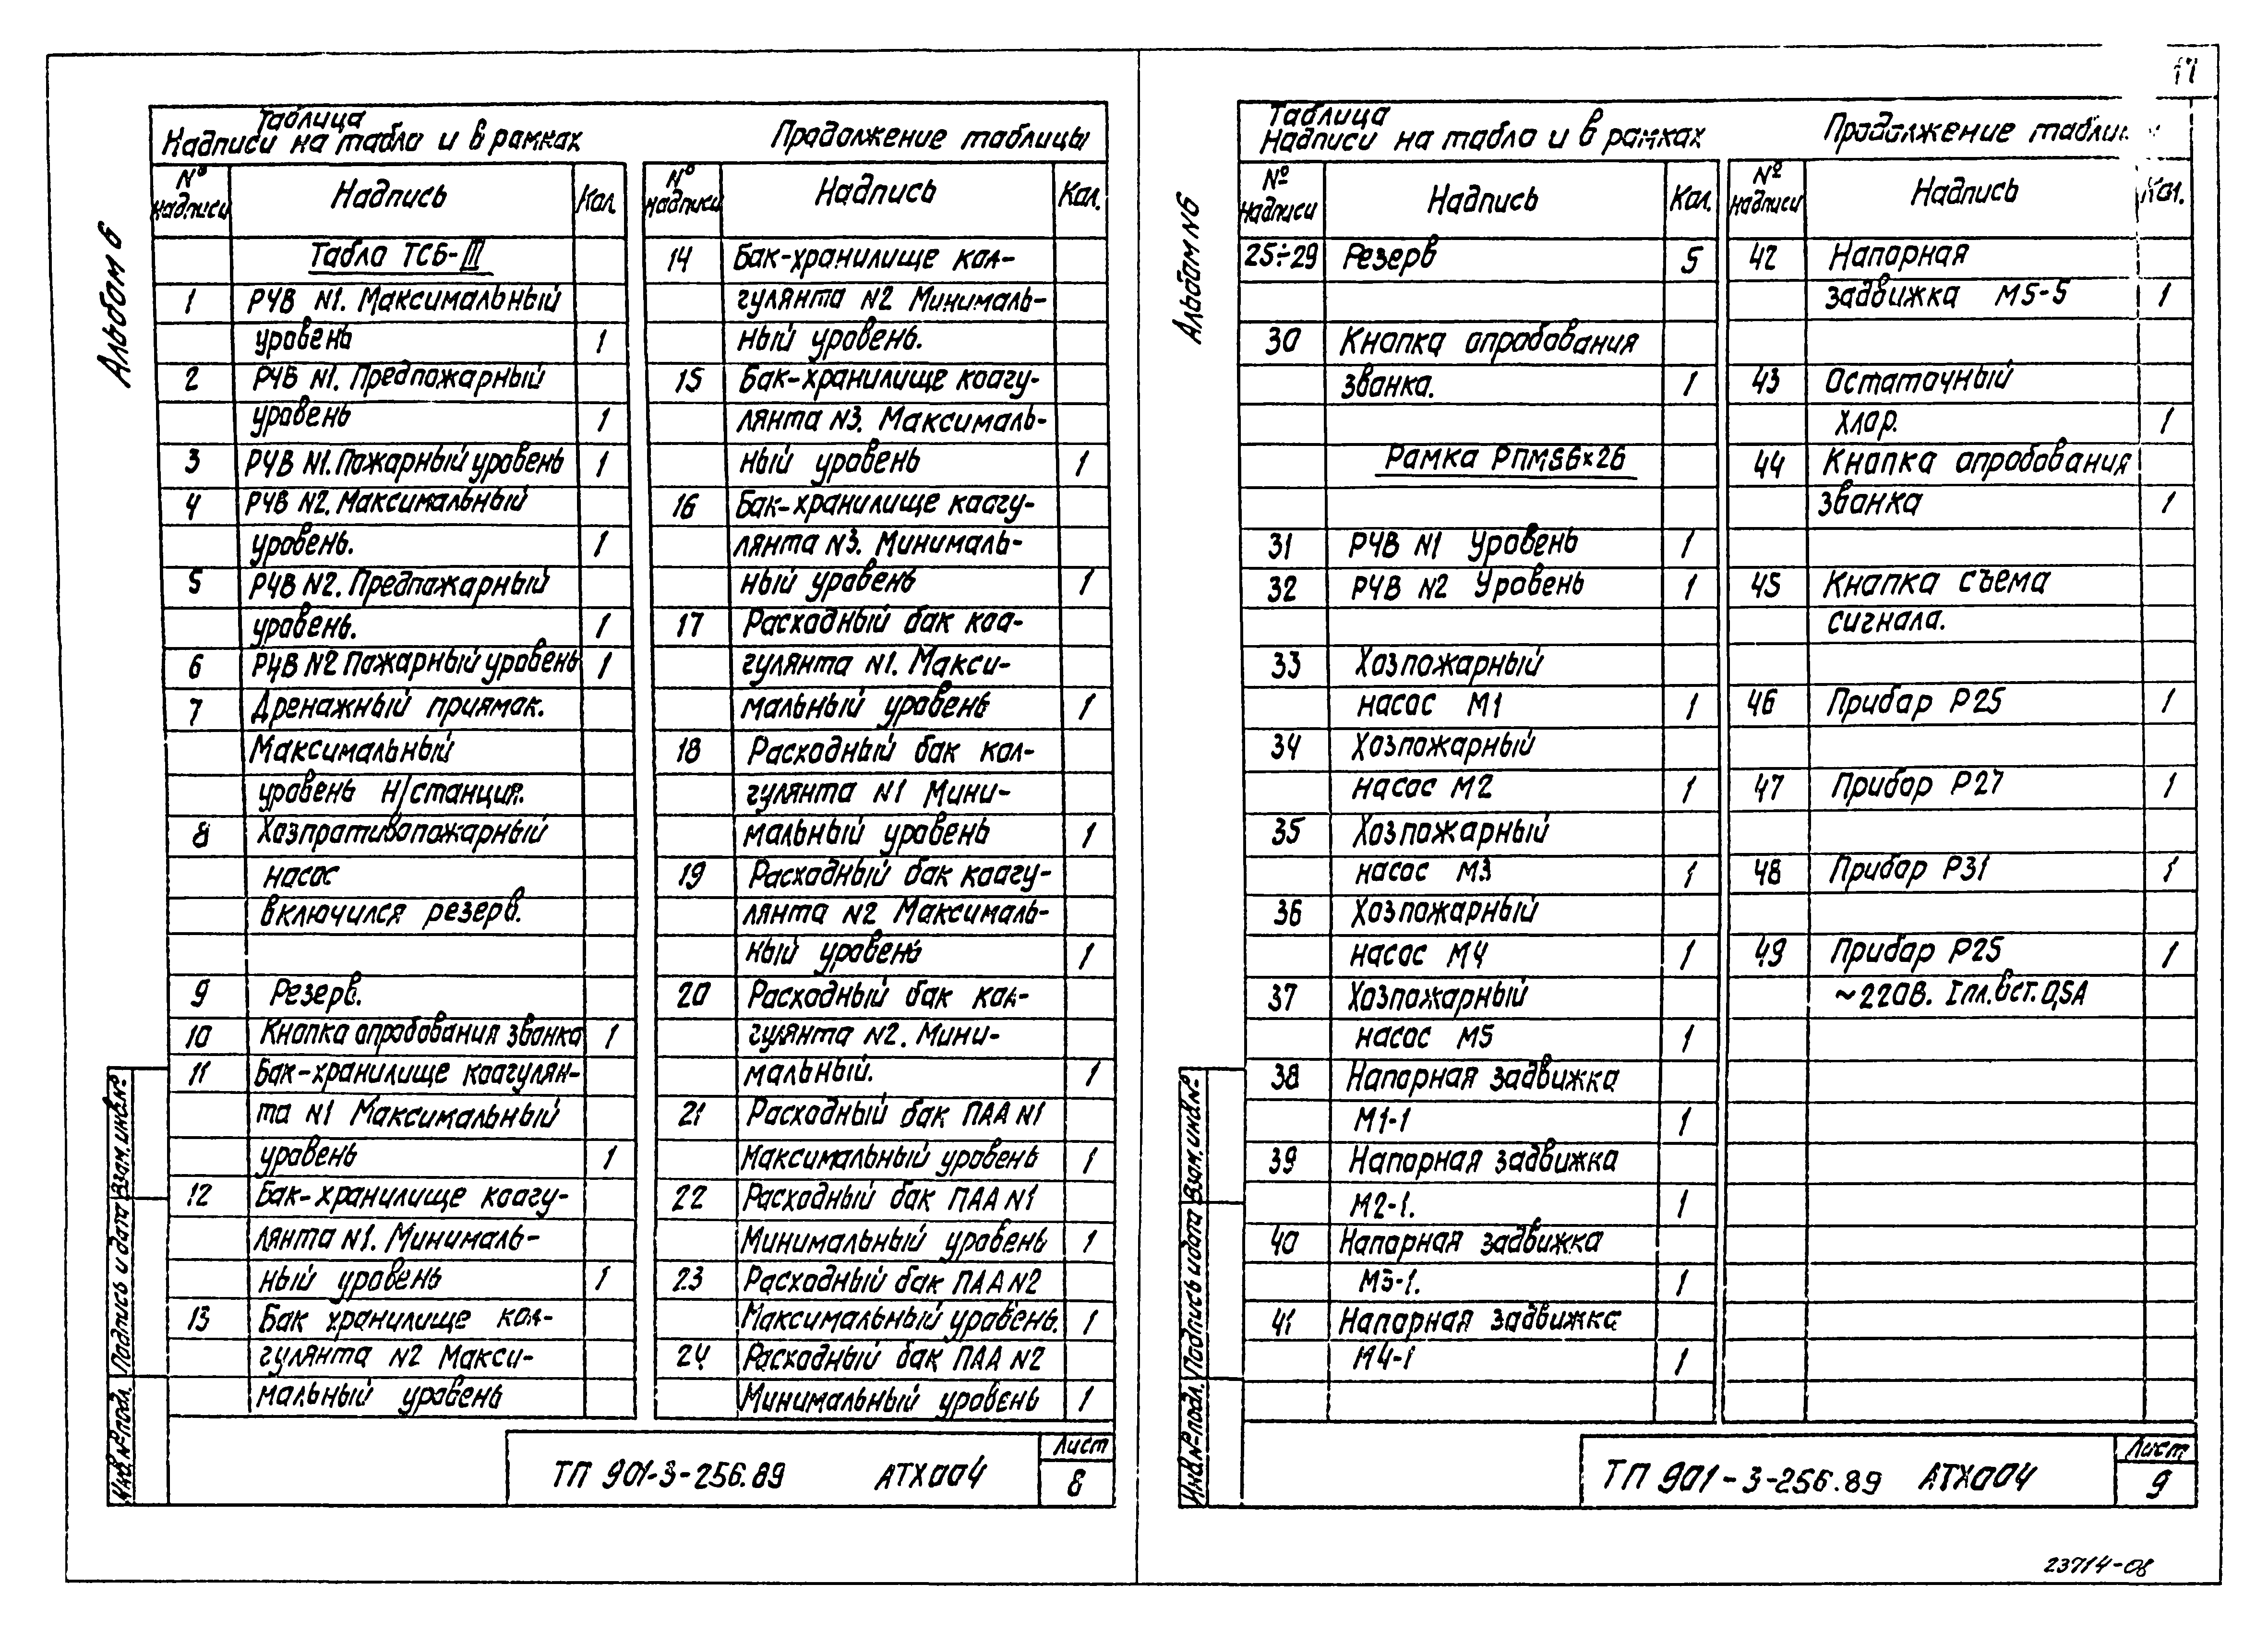 17
Альбом 6
Таблица
Надписи на табло и в рамках
Продолжение таблицы
№ надписи Надпись Кол.
Табло ТСБ-III
1 РЧВ N1. Максимальный
уровень 1
2 РЧВ N1. Предпожарный
уровень 1
3 РЧВ N1. Пожарный уровень 1
4 РЧВ N2. Максимальный
уровень. 1
5 РЧВ N2. Предпожарный
уровень. 1
6 РЧВ N2 Пожарный уровень 1
7 Дренажный приямок.
Максимальный
уровень Н/станция.
8 Хозпротивопожарный
насос
включился резерв.
9 Резерв.
10 Кнопка опробования звонка 1
11 Бак-хранилище коагулян-
та N1 Максимальный
уровень 1
12 Бак-хранилище коагу-
лянта N1. Минималь-
ный уровень 1
13 Бак хранилище коа-
гулянта N2 Макси-
мальный уровень
№ надписи Надпись Кол.
14 Бак-хранилище коа-
гулянта N2 Минималь-
ный уровень.
15 Бак-хранилище коагу-
лянта N3. Максималь-
ный уровень 1
16 Бак-хранилище коагу-
лянта N3. Минималь-
ный уровень 1
17 Расходный бак коа-
гулянта N1. Макси-
мальный уровень 1
18 Расходный бак коа-
гулянта N1 Мини-
мальный уровень 1
19 Расходный бак коагу-
лянта N2 Максималь-
ный уровень 1
20 Расходный бак коа-
гулянта N2. Мини-
мальный. 1
21 Расходный бак ПАА N1
Максимальный уровень 1
22 Расходный бак ПАА N1
Минимальный уровень 1
23 Расходный бак ПАА N2
Максимальный уровень. 1
24 Расходный бак ПАА N2
Минимальный уровень 1
Инв. № подл. Подпись и дата Взам. инв. №
ТП 901-3-256.89 АТХ004
Лист
8
Альбом N6
Таблица
Надписи на табло и в рамках
Продолжение таблиц
№ надписи Надпись Кол.
25÷29 Резерв 5
30 Кнопка опробования
звонка. 1
Рамка РПМ86х26
31 РЧВ N1 Уровень 1
32 РЧВ N2 Уровень 1
33 Хозпожарный
насос М1 1
34 Хозпожарный
насос М2 1
35 Хозпожарный
насос М3 1
36 Хозпожарный
насос М4 1
37 Хозпожарный
насос М5 1
38 Напорная задвижка
М1-1 1
39 Напорная задвижка
М2-1. 1
40 Напорная задвижка
М3-1. 1
41 Напорная задвижка
М4-1 1
№ надписи Надпись Кол.
42 Напорная
задвижка М5-5 1
43 Остаточный
хлор. 1
44 Кнопка опробования
звонка 1
45 Кнопка съема
сигнала.
46 Прибор Р25 1
47 Прибор Р27 1
48 Прибор Р31 1
49 Прибор Р25 1
~220В. Iпл.вст. 0,5А
Инв. № подл. Подпись и дата Взам. инв. №
ТП 901-3-256.89 АТХ004
Лист
9
23714-08